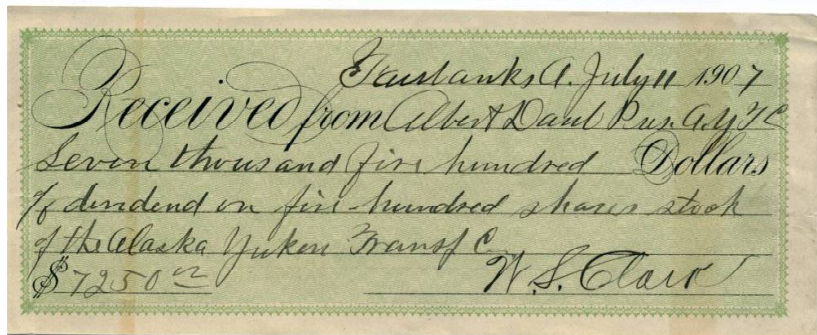 Fairbanks A. July 11 1907
Received from Albert Daub Pres. A.Y.T.C
Seven thousand five hundred Dollars
of dividend on five hundred shares stock
of the Alaska Yukon Transf C
$ 7250 00
W. S. Clark